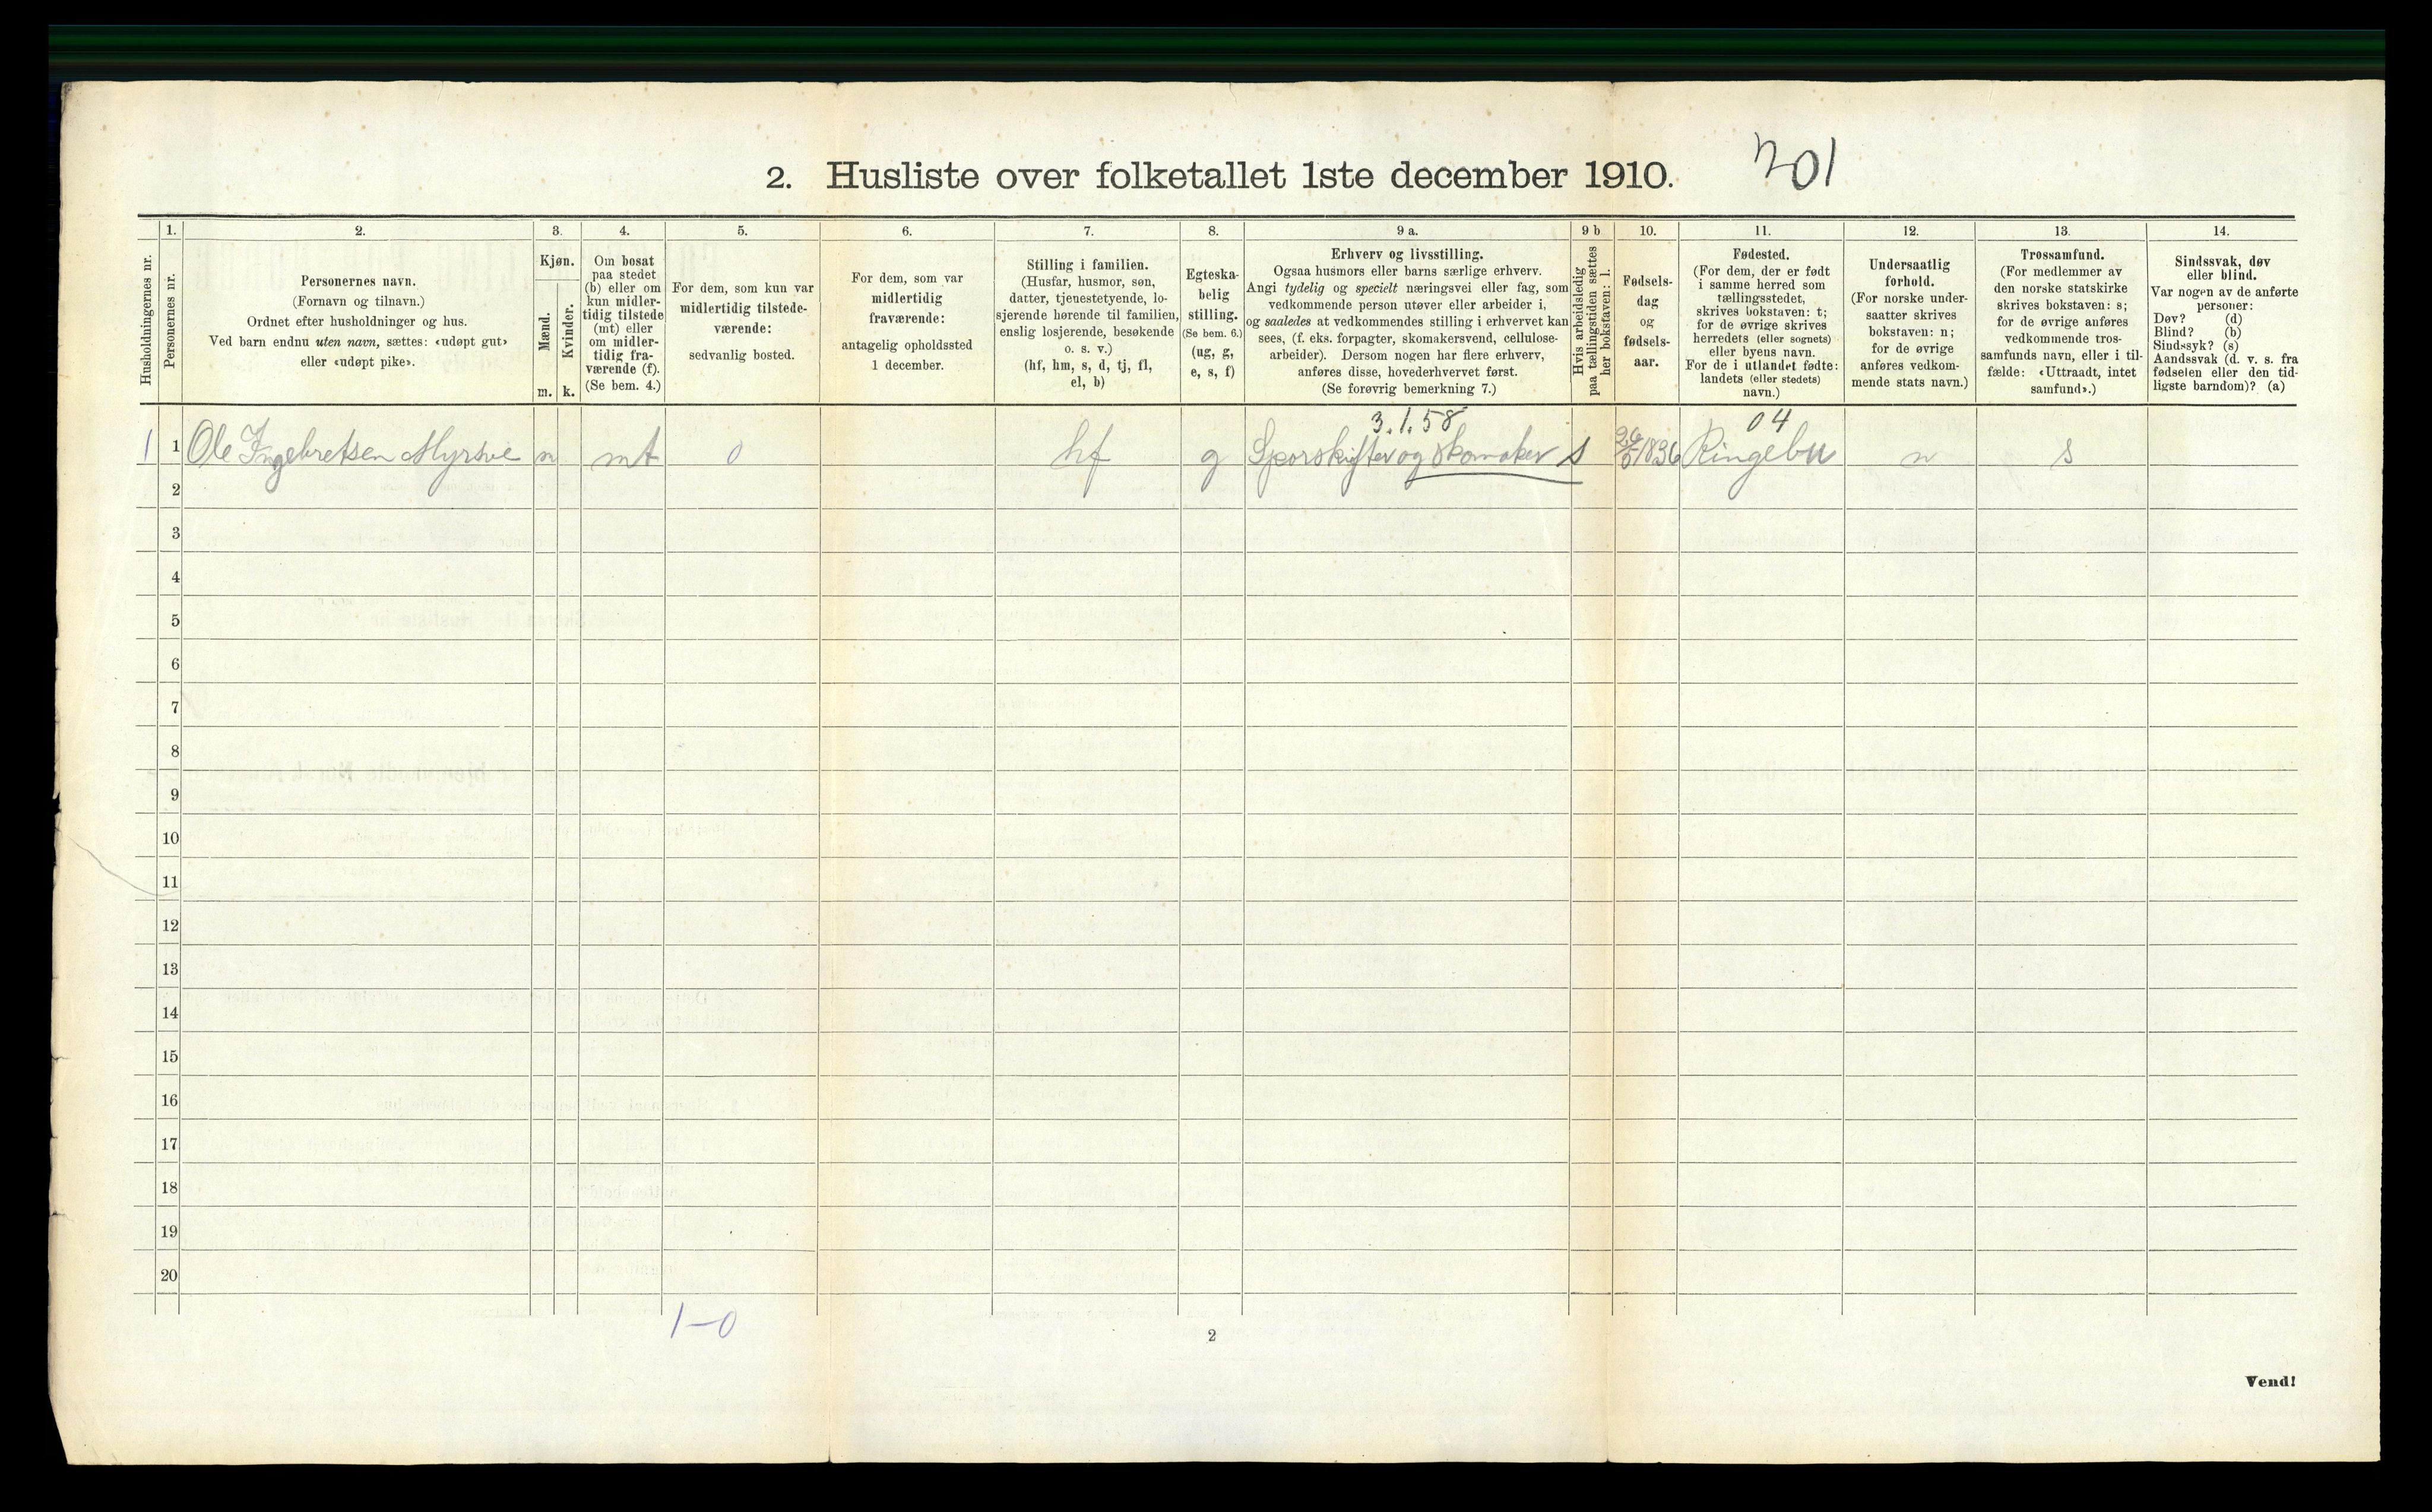 2. Husliste over folketallet 1ste december 1910. 201
Husholdningernes nr.
1.
Personernes nr.
2.
Personernes navn.
(Fornavn og tilnavn.)
Ordnet efter husholdninger og hus.
Ved barn endnu uten navn, sættes: «udøpt gut»
eller «udøpt pike».
3.
Kjøn.
Mænd.
Kvinder.
m. k.
4.
Om bosat
paa stedet
(b) eller om
kun midler-
tidig tilstede
(mt) eller
om midler-
tidig fra-
værende (f).
(Se bem. 4.)
5.
For dem, som kun var
midlertidig tilstede-
værende:
sedvanlig bosted.
6.
For dem, som var
midlertidig
fraværende:
antagelig opholdssted
1 december.
7.
Stilling i familien.
(Husfar, husmor, søn,
datter, tjenestetyende, lo-
sjerende hørende til familien,
enslig losjerende, besøkende
o. s. v.)
(hf, hm, s, d, tj, fl,
el, b)
8.
Egteska-
belig
stilling.
(Se bem. 6.)
(ug, g,
e, s, f)
9 a.
Erhverv og livsstilling.
Ogsaa husmors eller barns særlige erhverv.
Angi tydelig og specielt næringsvei eller fag, som
vedkommende person utøver eller arbeider i,
og saaledes at vedkommendes stilling i erhvervet kan
sees, (f. eks. forpagter, skomakersvend, cellulose-
arbeider). Dersom nogen har flere erhverv,
anføres disse, hovederhvervet først.
(Se forøvrig bemerkning 7.)
9 b
Hvis arbeidsledig
paa tællingstiden sættes
her bokstaven: l.
10.
Fødsels-
dag
og
fødsels-
aar.
11.
Fødested.
(For dem, der er født
i samme herred som
tællingsstedet,
skrives bokstaven: t;
for de øvrige skrives
herredets (eller sognets)
eller byens navn.
For de i utlandet fødte:
landets (eller stedets)
navn.)
12.
Undersaatlig
forhold.
(For norske under-
saatter skrives
bokstaven: n;
for de øvrige
anføres vedkom-
mende stats navn.)
13.
Trossamfund.
(For medlemmer av
den norske statskirke
skrives bokstaven: s;
for de øvrige anføres
vedkommende tros-
samfunds navn, eller i til-
fælde: «Uttraadt, intet
samfund».)
14.
Sindssvak, døv
eller blind.
Var nogen av de anførte
personer:
Døv? (d)
Blind? (b)
Sindssyk? (s)
Aandssvak (d. v. s. fra
fødselen eller den tid-
ligste barndom)? (a)
3.1.58 04
1 1 Ole Ingebretsen Myrsve m mt 0 hf g Sporskifter og skomaker s 26/5 1836 Ringebu n s
2
3
4
5
6
7
8
9
10
11
12
13
14
15
16
17
18
19
20
1-0
2
Vend!